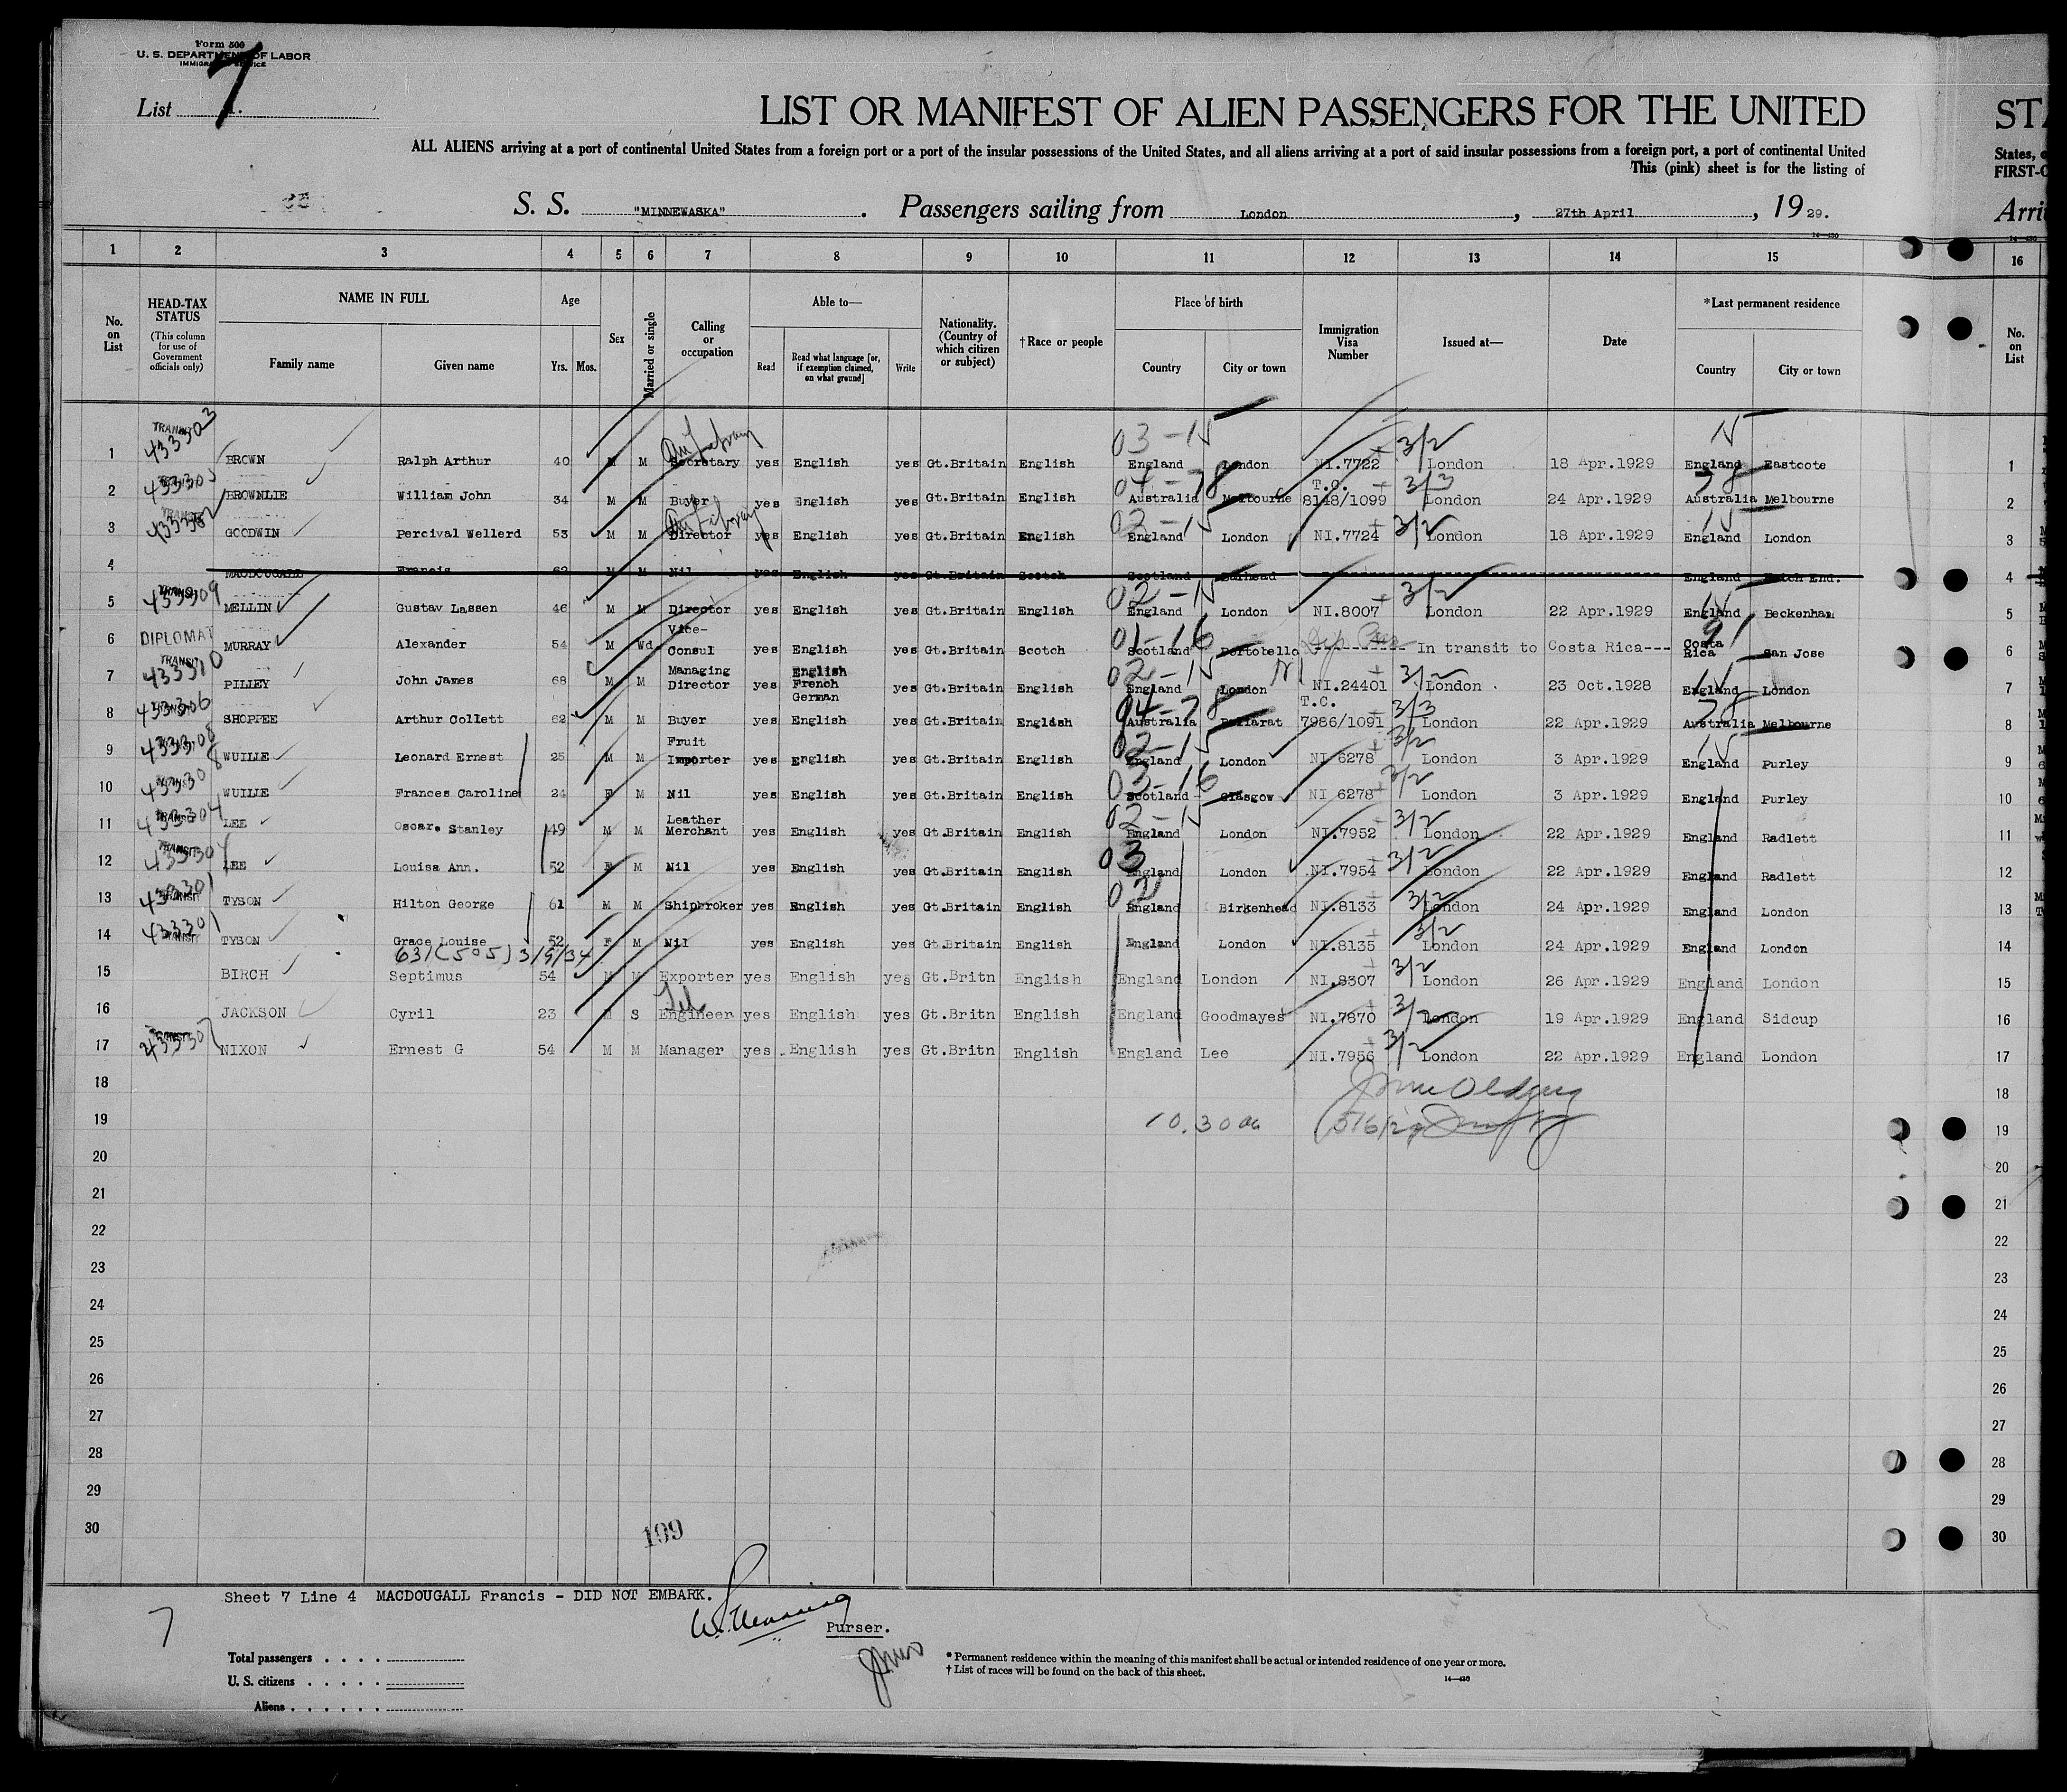 Form 500
U. S. DEPARTMENT OF LABOR
IMMIGRATION SERVICE
List 7
LIST OR MANIFEST OF ALIEN PASSENGERS FOR THE UNITED
ST
ALL ALIENS arriving at a port of continental United States from a foreign port or a port of the insular possessions of the United States, and all aliens arriving at a port of said insular possessions from a foreign port, a port of continental United
States,
This (pink) sheet is for the listing of
FIRST-C
S. S. "MINNEWASKA". Passengers sailing from London, 27th April, 1929.
Arri
14-430
1 2 3 4 5 6 7 8 9 10 11 12 13 14 15 16
No. on List
HEAD-TAX STATUS (This column for use of Government officials only)
NAME IN FULL
Family name Given name
Age
Yrs. Mos.
Sex
Married or single
Calling or occupation
Able to—
Read Read what language [or, if exemption claimed, on what ground] Write
Nationality. (Country of which citizen or subject)
†Race or people
Place of birth
Country City or town
Immigration Visa Number
Issued at—
Date
*Last permanent residence
Country City or town
No. on List
1 TRANSIT 433303 BROWN Ralph Arthur 40 M M Secretary yes English yes Gt.Britain English 03-15 England London NI.7722 3/2 London 18 Apr.1929 England Eastcote 1
2 433305 BROWNLIE William John 34 M M Buyer yes English yes Gt.Britain English 04-78 Australia Melbourne T.C. 8148/1099 3/3 London 24 Apr.1929 78 Australia Melbourne 2
3 GOODWIN Percival Wellerd 53 M M Director yes English yes Gt.Britain English England London NI.7724 3/2 London 18 Apr.1929 England London 3
4 MACDOUGALL Francis 62 M M Nil yes English yes Gt.Britain Scotch Scotland Barhead England Hatch End. 4
5 TRANSIT 433309 MELLIN Gustav Lassen 46 M M Director yes English yes Gt.Britain English 02-15 England London NI.8007 3/2 London 22 Apr.1929 England Beckenham 5
6 DIPLOMAT MURRAY Alexander 54 M Wd Vice-Consul yes English yes Gt.Britain Scotch 01-16 Scotland Portobello In transit to Costa Rica--- 91 Costa Rica San Jose 6
7 TRANSIT 433310 PILLEY John James 68 M M Managing Director yes English French German yes Gt.Britain English 02-15 England London NI.24401 3/2 London 23 Oct.1928 England London 7
8 433306 SHOPPEE Arthur Collett 62 M M Buyer yes English yes Gt.Britain English 04-78 Australia Ballarat T.C. 7986/1091 3/3 London 22 Apr.1929 78 Australia Melbourne 8
9 433308 WUILLE Leonard Ernest 25 M M Fruit Importer yes English yes Gt.Britain English 02-15 England London NI 6278 3/2 London 3 Apr.1929 England Purley 9
10 433308 WUILLE Frances Caroline 24 F M Nil yes English yes Gt.Britain English 03-16 Scotland Glasgow NI 6278 3/2 London 3 Apr.1929 England Purley 10
11 433304 LEE Oscar. Stanley 49 M M Leather Merchant yes English yes Gt.Britain English 02-15 England London NI.7952 3/2 London 22 Apr.1929 England Radlett 11
12 TRANSIT 433304 LEE Louisa Ann. 52 F M Nil yes English yes Gt.Britain English 03 England London NI.7954 3/2 London 22 Apr.1929 England Radlett 12
13 433301 TRANSIT TYSON Hilton George 61 M M Shipbroker yes English yes Gt.Britain English 02 England Birkenhead NI.8133 3/2 London 24 Apr.1929 England London 13
14 433301 TRANSIT TYSON Grace Louise 52 F M Nil yes English yes Gt.Britain English England London NI.8135 3/2 London 24 Apr.1929 England London 14
631(505)3/5/34
15 BIRCH Septimus 54 M M Exporter yes English yes Gt.Britn English England London NI.8307 3/2 London 26 Apr.1929 England London 15
16 JACKSON Cyril 23 M S Engineer yes English yes Gt.Britn English England Goodmayes NI.7870 3/2 London 19 Apr.1929 England Sidcup 16
17 433307 NIXON Ernest G 54 M M Manager yes English yes Gt.Britn English England Lee NI.7956 3/2 London 22 Apr.1929 England London 17
18 18
19 10.30 19
20 20
21 21
22 22
23 23
24 24
25 25
26 26
27 27
28 28
29 29
30 30
199
Sheet 7 Line 4 MACDOUGALL Francis - DID NOT EMBARK.
7
Purser.
Total passengers . . . .
U. S. citizens . . . . .
Aliens . . . . . .
* Permanent residence within the meaning of this manifest shall be actual or intended residence of one year or more.
† List of races will be found on the back of this sheet.
14-430